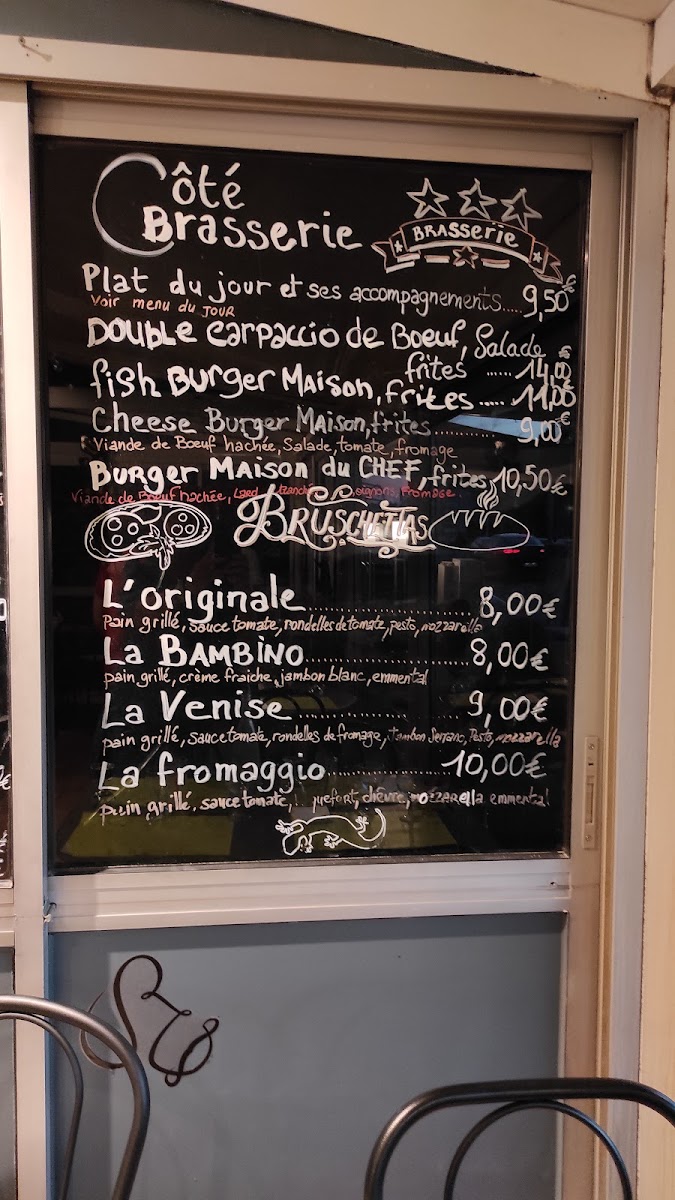 Côté
Brasserie
BRASSERIE
Plat du jour et ses accompagnements..... 9,50€
Voir menu du JOUR
DOUBLE Carpaccio de Boeuf, Salade
frites ...... 14,00€
fish BURGER MAISON, frites ..... 11,00€
Cheese Burger MAISON, frites .......... 9,00€
Viande de Boeuf hachée, Salade, tomate, fromage
BURGER MAISON du CHEF, frites, 10,50€
Viande de Boeuf hachée, Lard oignons, Fromage.
BRUSCHETTAS
L'originale ........................ 8,00€
Pain grillé, sauce tomate, rondelles de tomate, pesto, mozzarella
La BAMBINO ........................ 8,00€
pain grillé, crème fraiche, jambon blanc, emmental
La Venise ........................ 9,00€
pain grillé, sauce tomate, rondelles de fromage, jambon Serrano, Pesto, mozzarella
La fromaggio ........................ 10,00€
pain grillé, sauce tomate, chèvre, mozzarella emmental